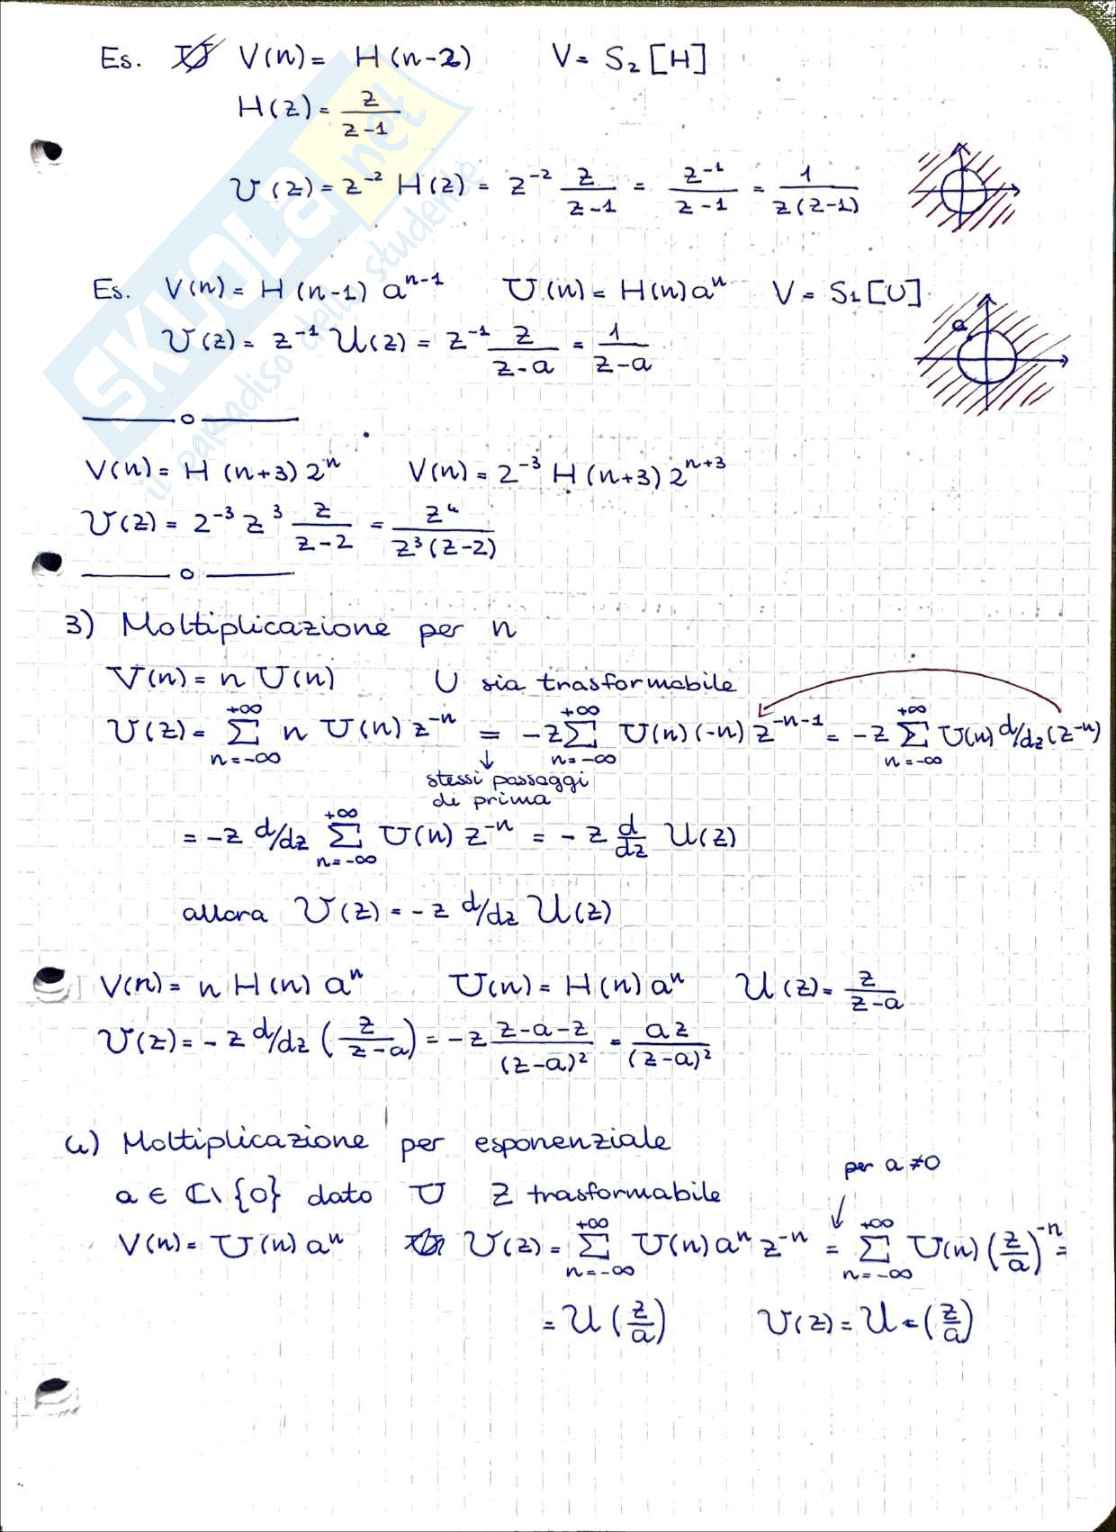 Es. V(n) = H(n-2) V = S₂[H]
H(z) = z/(z-1)
V(z) = z⁻² H(z) = z⁻² z/(z-1) = z⁻¹/(z-1) = 1/(z(z-1))
Es. V(n) = H(n-1) aⁿ⁻¹ U(n) = H(n)aⁿ V = S₁[U]
a
V(z) = z⁻¹ U(z) = z⁻¹ z/(z-a) = 1/(z-a)
V(n) = H(n+3) 2ⁿ V(n) = 2⁻³ H(n+3) 2ⁿ⁺³
V(z) = 2⁻³ z³ z/(z-2) = z⁴/(2³(z-2))
3) Moltiplicazione per n
V(n) = n U(n) U sia trasformabile
V(z) = Σ_{n=-∞}^{+∞} n U(n) z⁻ⁿ = -z Σ_{n=-∞}^{+∞} U(n)(-n) z⁻ⁿ⁻¹ = -z Σ_{n=-∞}^{+∞} U(n) d/dz (z⁻ⁿ)
↓
stessi passaggi
di prima
= -z d/dz Σ_{n=-∞}^{+∞} U(n) z⁻ⁿ = -z d/dz U(z)
allora V(z) = -z d/dz U(z)
V(n) = n H(n) aⁿ U(n) = H(n) aⁿ U(z) = z/(z-a)
V(z) = -z d/dz (z/(z-a)) = -z (z-a-z)/(z-a)² = az/(z-a)²
4) Moltiplicazione per esponenziale
per a ≠ 0
a ∈ ℂ\{0} dato U Z trasformabile
V(n) = U(n) aⁿ V(z) = Σ_{n=-∞}^{+∞} U(n) aⁿ z⁻ⁿ = Σ_{n=-∞}^{+∞} U(n) (z/a)⁻ⁿ =
= U(z/a) V(z) = U(z/a)
SKUOLA.net
il paradiso dello studente